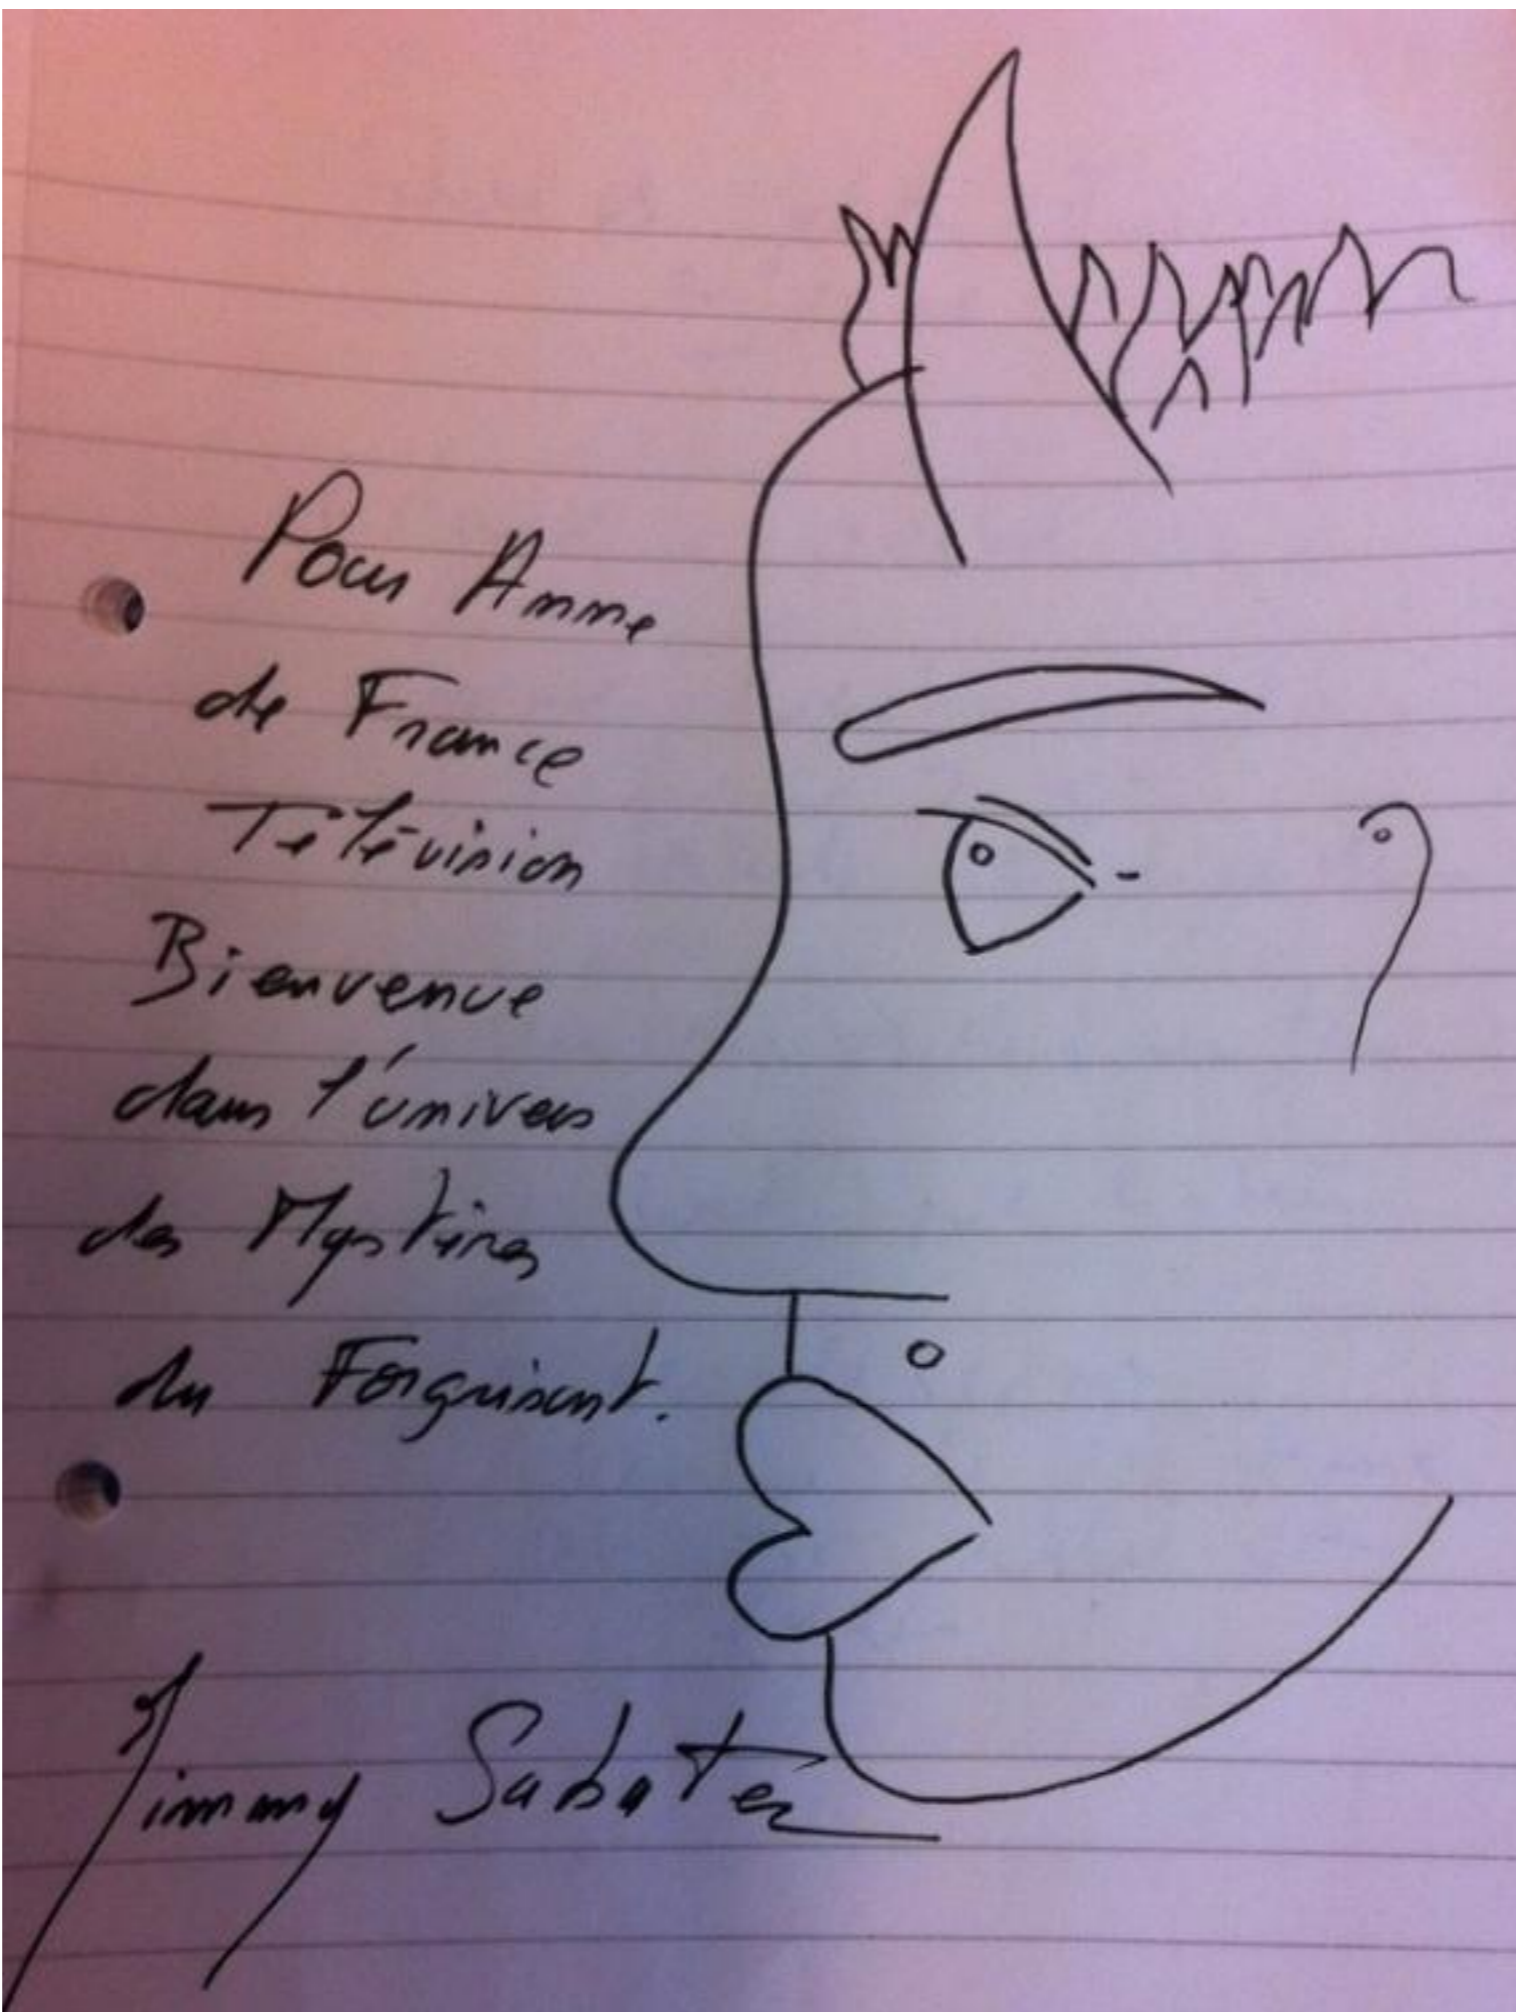 Pour Anne
de France
Télévision
Bienvenue
dans l'univers
des Mystères
du Forguisant.
Jimmy Sabater